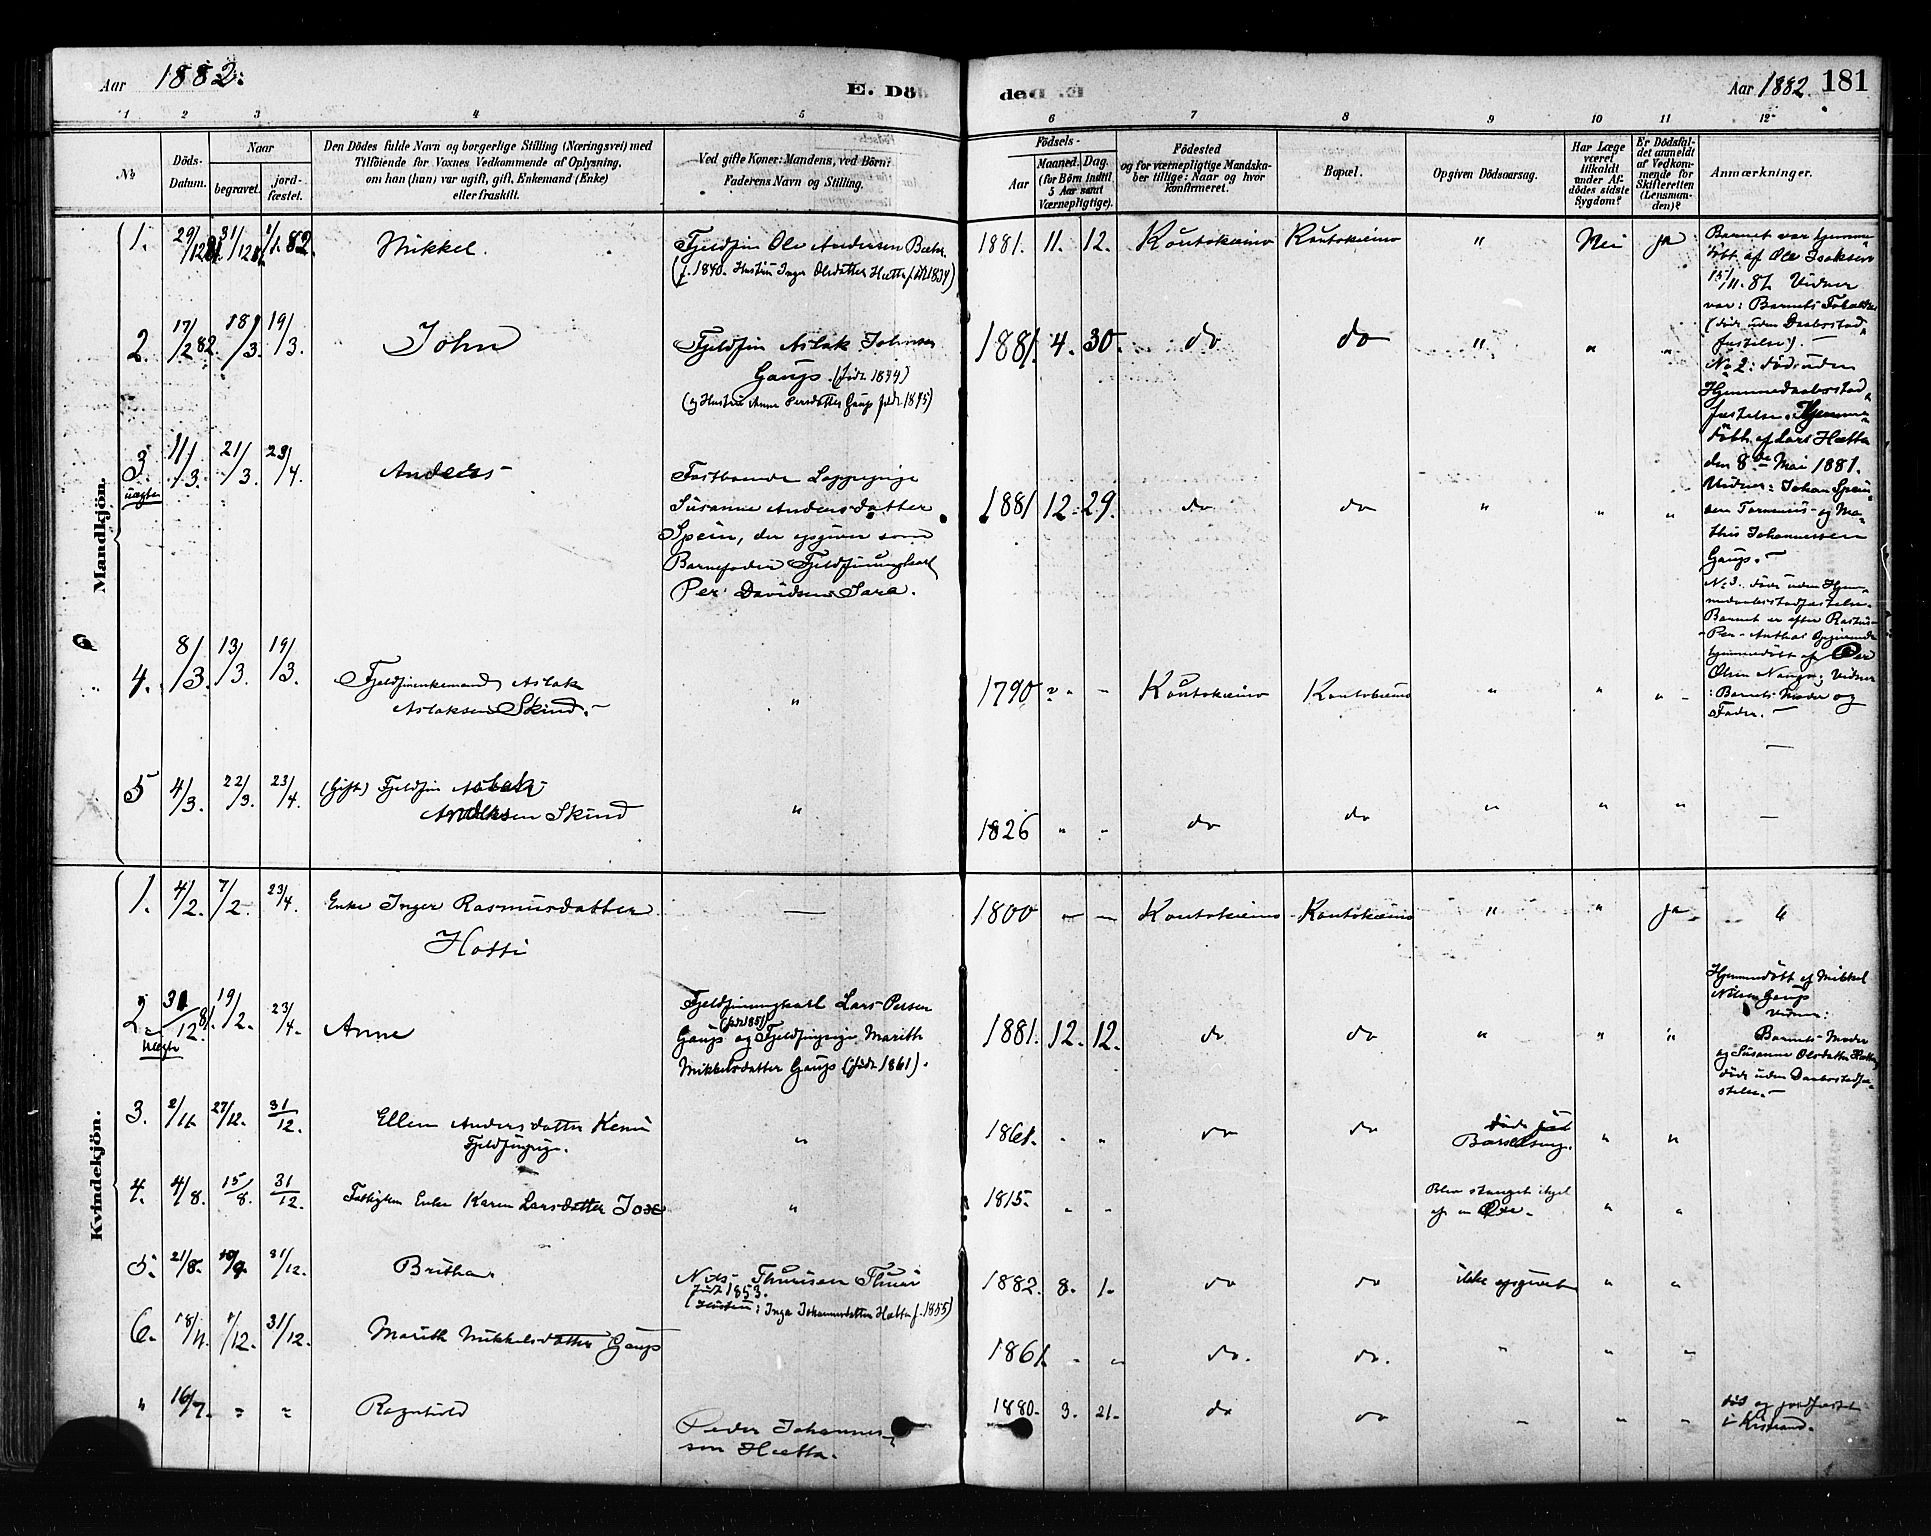 Aar 1882.
E. Dö
ded
Aar 1882. 181
1 2 3 4 5 6 7 8 9 10 11 12
No
Döds-Datum.
Naar
begravet.
jord-fæstet.
Den Dödes fulde Navn og borgerlige Stilling (Næringsvei) med
Tilföiende for Voxnes Vedkommende af Oplysning,
om han (hun) var ugift, gift, Enkemand (Enke)
eller fraskilt.
Ved gifte Koner: Mandens, ved Börn:
Faderens Navn og Stilling.
Födsels-
Aar
Maaned. Dag.
(for Börn indtil
5 Aar samt
Værnepligtige).
Födested
og for værnepligtige Mandska-
ber tillige: Naar og hvor
konfirmeret.
Bopæl.
Opgiven Dödsaarsag.
Har Læge
været
tilkaldt
under Af-
dödes sidste
Sygdom?
Er Dödsfal-
det anmeldt
af Vedkom-
mende for
Skifteretten
(Lensman-
den)?
Anmærkninger.
Mandkjön.
1. 29/12 81 31/12 81 1/1. 82. Mikkel.
Fjeldfin Ole Andersen Bæhr
(f. 1840. Hustru Inger Olsdatter Hætta f. 1834)
1881. 11. 12. Koutokeino Koutokeino " Nei ja
Barnet var hjemme-
döbt af Ole Isaksen
15/11. 81. Vidner
var: Barnets Forældre
(döde uden Daabsstad-
fæstelse). —
2. 17/2 82. 18/3. 19/3. John
Fjeldfin Aslak Johnsen
Gaup. (född 1844)
(og Hustru Anne Persdatter Gaup född 1845)
1881. 4. 30. do do " " "
No 2: död uden
Hjemmedaabsstad-
fæstelse. Hjemme-
döbt af Lars Hætta
den 8de Mai 1881.
Vidner: Johan Spein,
den Tornensis og Ma-
this Johannessen
Gaup. —
3. uægte 11/3. 21/3. 23/4. Anders
Fastboende Lappepige
Susanne Andersdatter
Spein, der opgiver som
Barnefader Fjeldfinungkarl
Per Davidsen Sara.
1881 12. 29. do do " " "
No 3. död uden Hjem-
medaabsstadfæstelse.
Barnet er efter Rasmus
Per-Anthas Opgivende
hjemmedöbt af Per
Olsen Nango; Vidner
: Barnets Moder og
Fader. —
4. 8/3. 13/3. 19/3. Fjeldfinenkemand Aslak
Aslaksen Skind. —
" 1790 " " - Koutokeino Koutokeino " " "
—
5 4/3. 22/3. 23/4. (Gift) Fjeldfin Aslak
Andersen Skind
" 1826 " " do do " " " —
Kvindekjön.
1. 4/2. 7/2. 23/4. Enke Inger Rasmusdatter
Hotti
— 1800 — — Koutokeino Koutokeino " " ja "
2. uægte 31/12 81. 19/2. 23/4. Anne
Fjeldfinungkarl Lars Persen
(född 1851)
Gaup og Fjeldfinpige Marith
Mikkelsdatter Gaup (född 1861).
1881. 12. 12. do do " " "
Hjemmedöbt af Mikkel
Nilsen Gaup
Vidner:
Barnets Moder
og Susanne Olsdatter Hætta
döde uden Daabsstadfæ-
stelse. —
3. 2/11. 27/12. 31/12. Ellen Andersdatter Kemi
Fjeldfinpige.
" 1861. " " do do döde paa
Barselseng. " "
4. 4/8. 15/8. 31/12. Fattiglem Enke Karen Larsdatter Jox
" 1815. " " Blev stanget ihjel
af en Oxe. " "
5. 21/8. 10/9. 31/12. Britha
Nils Thuresen Thuri
född 1853.
(Hustru: Inga Johannesdatter Hætta f. 1855)
1882. 8. 1. do do ikke opgivet " "
6. 18/11. 1/12. 31/12. Marith Mikkelsdatter Gaup
1861. " " do. do. " " "
" 16/7. " " Ragnhild
Peder Johannes-
sen Hætta.
1880. 3. 21. do do " " "
död og jordfæstet
i Kistrand.